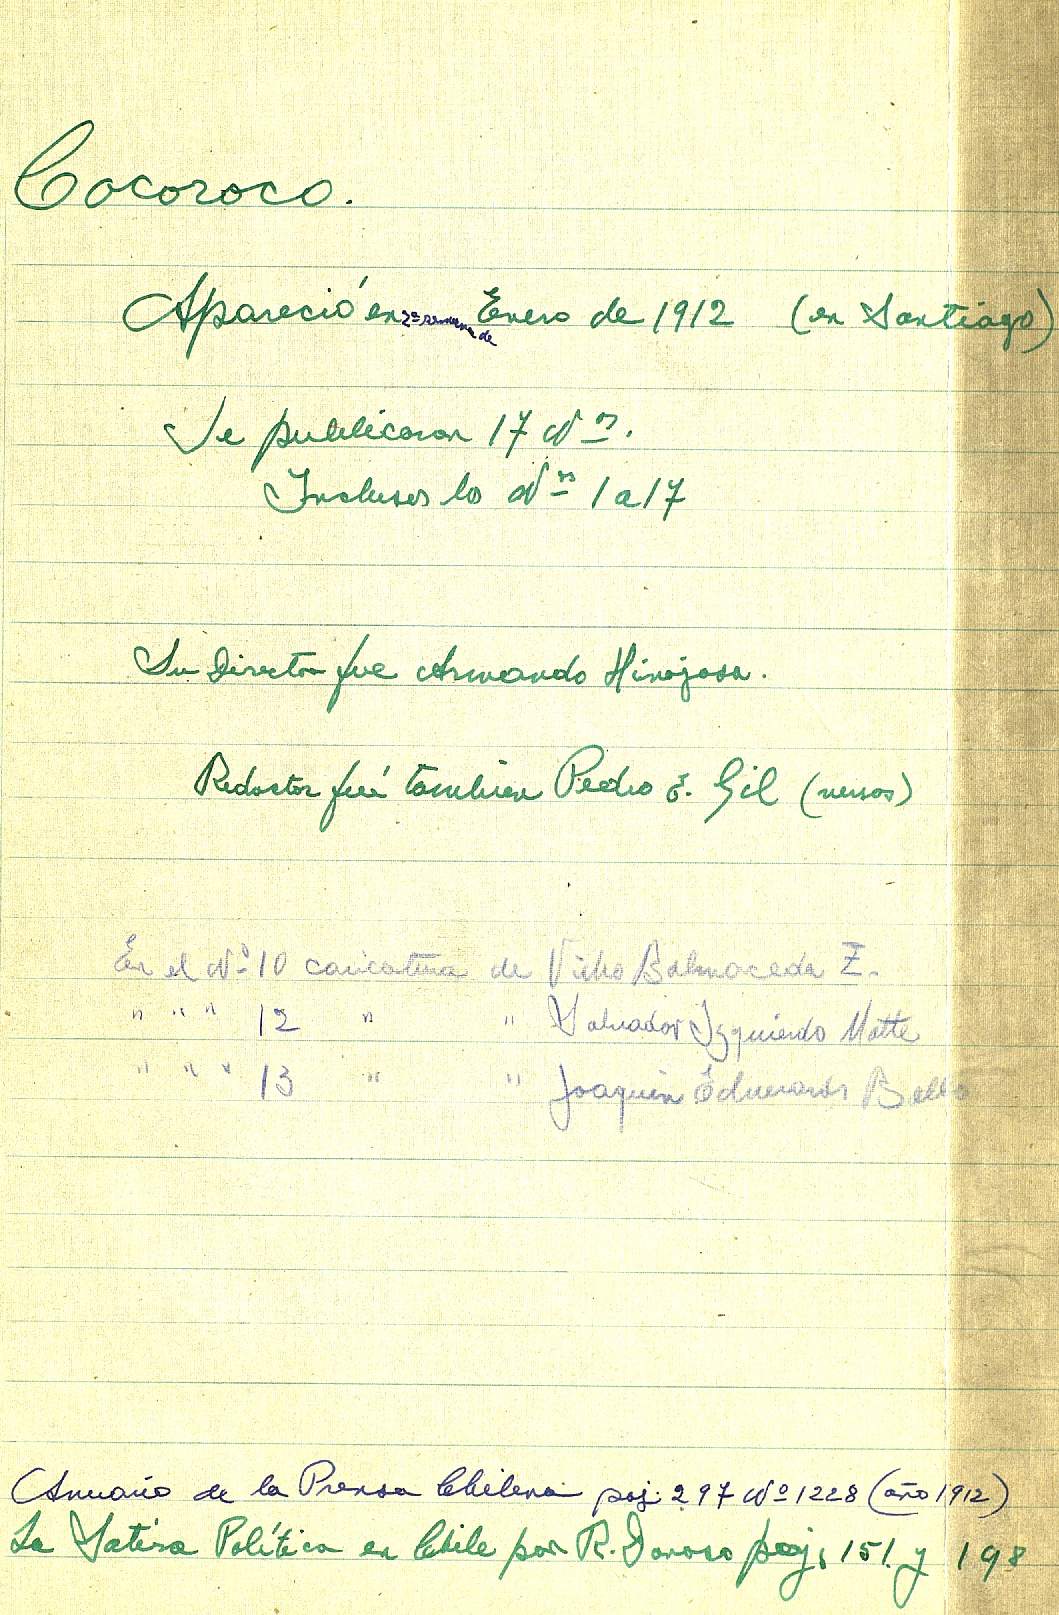 Cocoroco.
Apareció en 2ª semana de Enero de 1912 (en Santiago)
Se publicaron 17 Nos.
Incluses los Nos 1 a 17
Su Director fue Armando Hinojosa.
Redactor fué también Pedro E. Gil (versos)
En el Nº 10 caricatura de Vicho Balmaceda Z.
" " " 12 " " Salvador Izquierdo Matte
" " " 13 " " Joaquín Edwards Bello
Anuario de la Prensa Chilena páj. 297 Nº 1228 (año 1912)
La Sátira Política en Chile por R. Donoso pájs 151 y 198